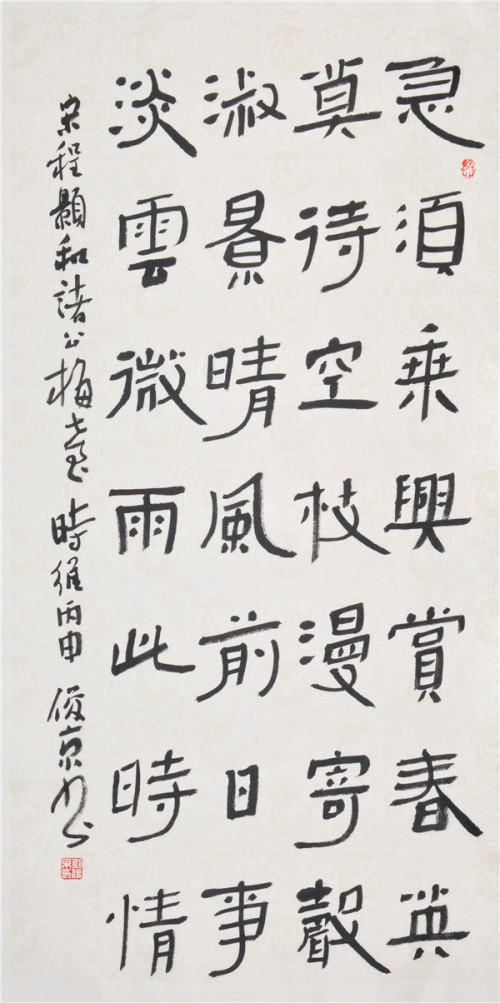 急須乗興賞春英
莫待空枝漫寄聲
淑景晴風前日事
淡雲微雨此時情
宋程顥和諸公梅臺 時維丙申 俊京书